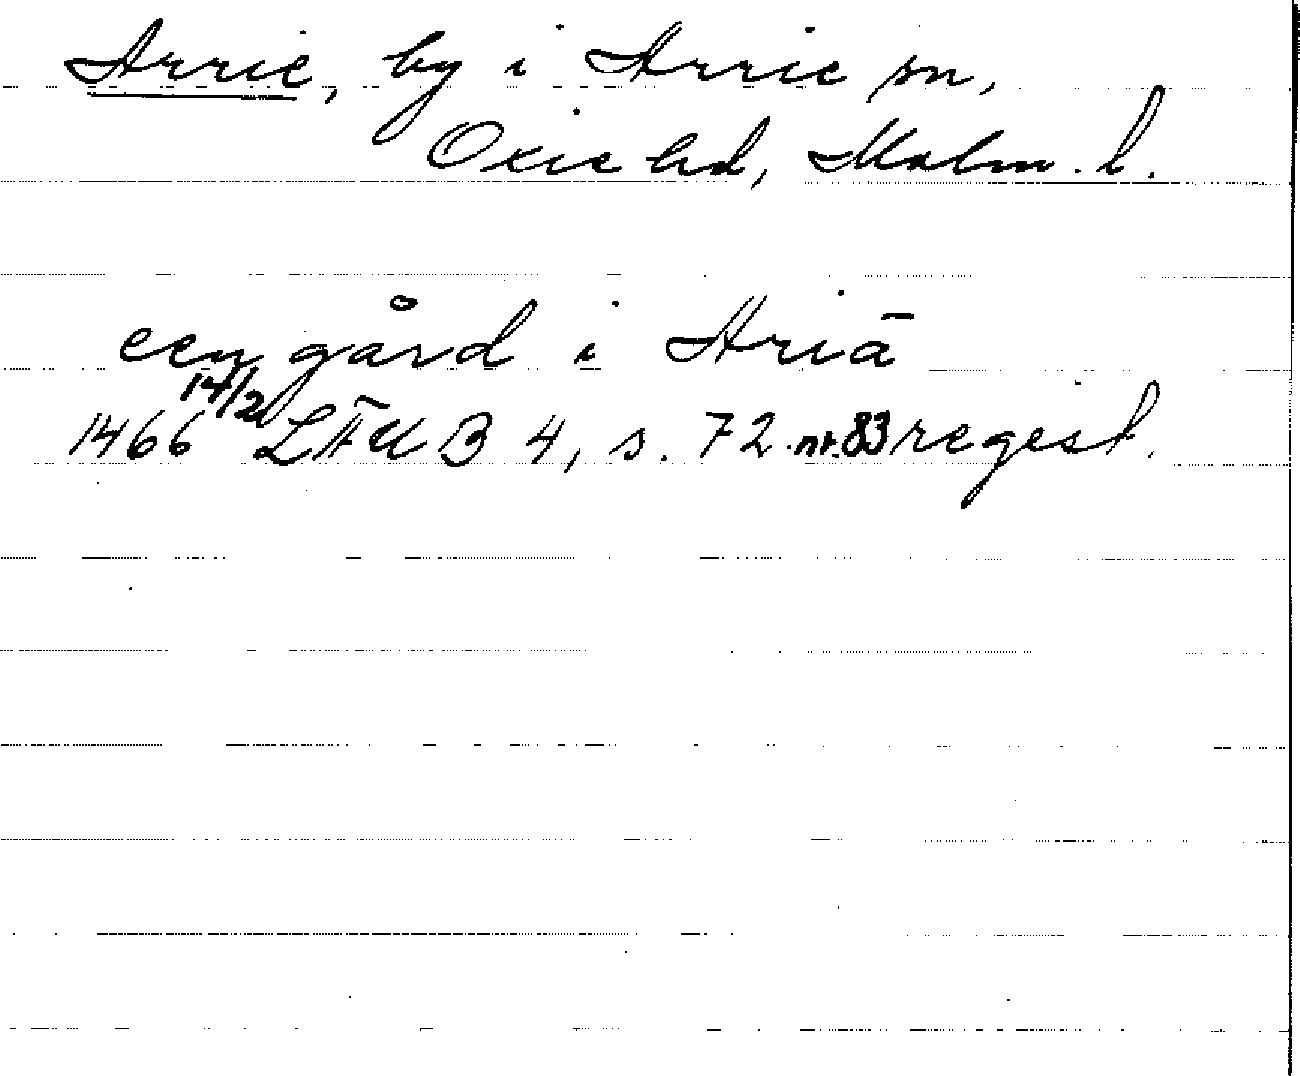 Arrie, by i Arrie sn,
Oxie hd, Malm. l.
een gård i Ariā
1466 14/2 LÄUB 4, s. 72 nr. 83 regest.